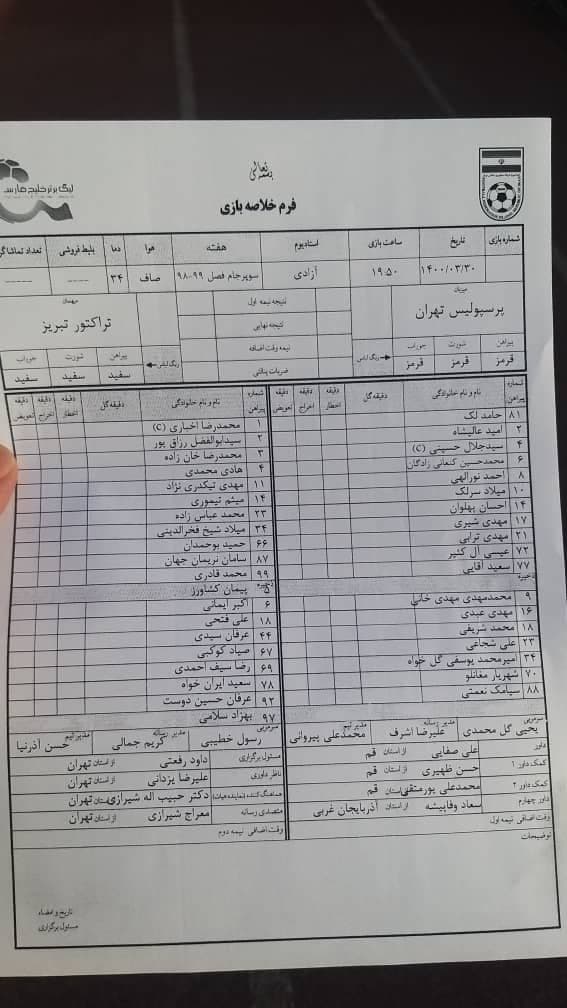 بسمه تعالی
لیگ برتر خلیج فارس
فرم خلاصه بازی
شماره بازی تاریخ ساعت بازی استادیوم هفته هوا دما بلیط فروشی تعداد تماشاگر
۱۴۰۰/۰۳/۳۰ ۱۹:۵۰ آزادی سوپرجام فصل ۹۹-۹۸ صاف ۳۴ ---- -----
میزبان
پرسپولیس تهران
پیراهن شورت جوراب
رنگ لباس
قرمز قرمز قرمز
نتیجه نیمه اول
نتیجه نهایی
نیمه وقت اضافه
ضربات پنالتی
میهمان
تراکتور تبریز
رنگ لباس
پیراهن شورت جوراب
سفید سفید سفید
شماره پیراهن نام و نام خانوادگی دقیقه گل دقیقه اخطار دقیقه اخراج دقیقه تعویض
۸۱ حامد لک
۲ امید عالیشاه
۴ سیدجلال حسینی (C)
۶ محمدحسین کنعانی زادگان
۸ احمد نورالهی
۱۰ میلاد سرلک
۱۴ احسان پهلوان
۱۷ مهدی شیری
۲۱ مهدی ترابی
۷۲ عیسی آل کثیر
۷۷ سعید آقایی
ذخیره
۹ محمدمهدی مهدی خانی
۱۶ مهدی عبدی
۱۸ محمد شریفی
۲۳ علی شجاعی
۳۴ امیرمحمد یوسفی گل خواه
۷۰ شهریار مغانلو
۸۸ سیامک نعمتی
سرمربی یحیی گل محمدی مدیر رسانه علیرضا اشرف مدیر تیم محمدعلی پیروانی
داور علی صفایی از استان قم
کمک داور ۱ حسن ظهیری از استان قم
کمک داور ۲ محمدعلی پورمتقی از استان قم
داور چهارم سعاد وفاپیشه از استان آذربایجان غربی
وقت اضافی نیمه اول
توضیحات
شماره پیراهن نام و نام خانوادگی دقیقه گل دقیقه اخطار دقیقه اخراج دقیقه تعویض
۱ محمدرضا اخباری (C)
۲ سیدابوالفضل رزاق پور
۳ محمدرضا خان زاده
۴ هادی محمدی
۱۱ مهدی تیکدری نژاد
۱۴ میثم تیموری
۲۳ محمد عباس زاده
۳۴ میلاد شیخ فخرالدینی
۶۶ حمید بوحمدان
۸۷ سامان نریمان جهان
۹۹ محمد قادری
ذخیره
۵ پیمان کشاورز
۶ اکبر ایمانی
۱۸ علی فتحی
۴۴ عرفان سیدی
۶۷ صیاد کوکبی
۶۹ رضا سیف احمدی
۷۸ سعید ایران خواه
۹۲ عرفان حسین دوست
۹۷ بهزاد سلامی
سرمربی رسول خطیبی مدیر رسانه کریم جمالی مدیر تیم حسن آذرنیا
مسئول برگزاری داود رفعتی از استان تهران
ناظر داوری علیرضا یزدانی از استان تهران
هماهنگ کننده (نماینده هیات) دکتر حبیب اله شیرازی از استان تهران
متصدی رسانه معراج شیرازی از استان تهران
وقت اضافی نیمه دوم
تاریخ و امضاء
مسئول برگزاری